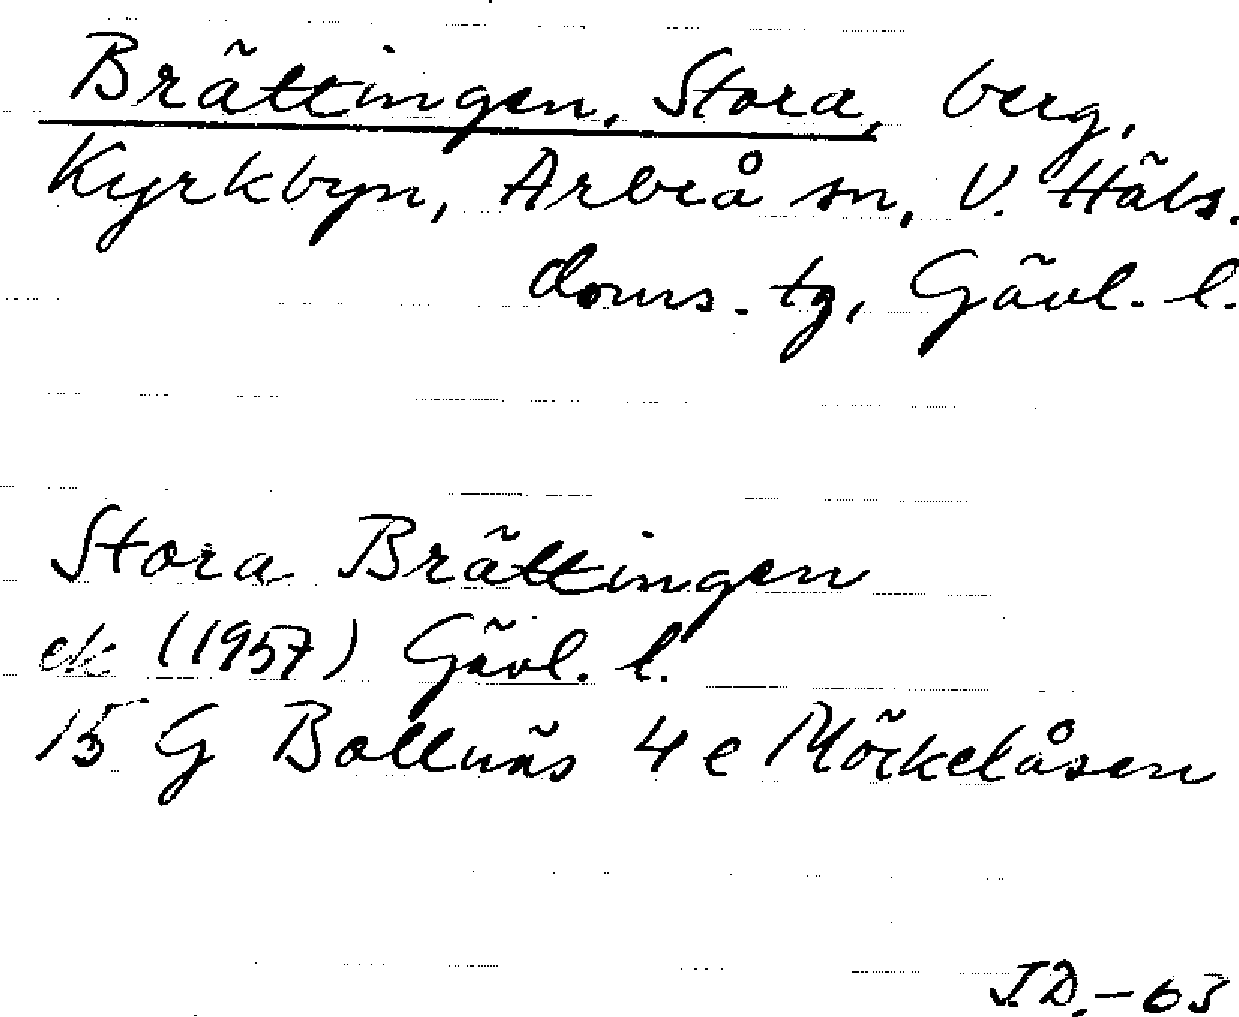 Brättingen, Stora, berg,
Kyrkbyn, Arbrå sn, V. Häls.
doms. tg, Gävl. l.
Stora Brättingen
ek (1957) Gävl. l.
15 G Bollnäs 4 e Möckelåsen
J.D. - 63